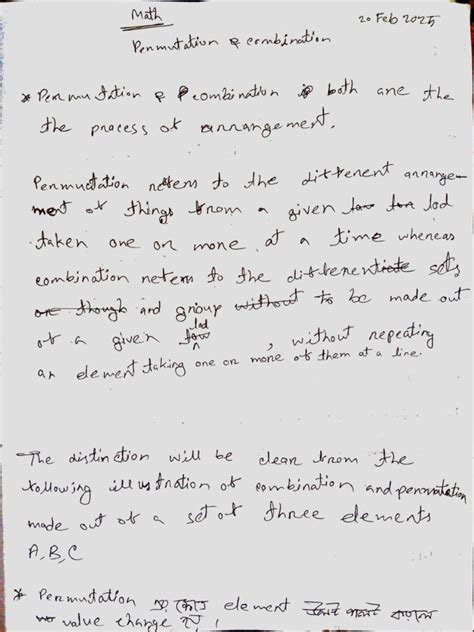 Math
20 Feb 2025
Permutation & combination
* Permutation & combination is both are the
the process of arrangement.
Permutation refers to the different arrange-
ment of things from a given lod
taken one or more at a time whereas
combination refers to the different sets
and group to be made out
of a given lod, without repeating
an element taking one or more of them at a line.
The distinction will be clear from the
following illustration of combination and permutation
made out of a set of three elements
A, B, C
* Permutation এ কোন element
value change হয়।